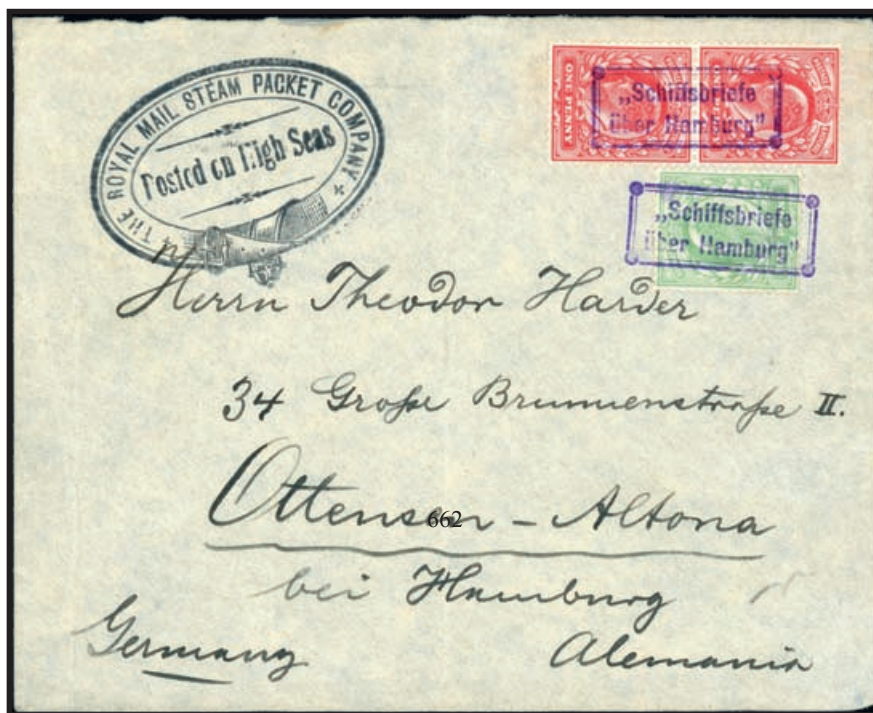 THE ROYAL MAIL STEAM PACKET COMPANY
Posted on High Seas
ONE PENNY
„Schiffsbriefe
über Hamburg"
„Schiffsbriefe
über Hamburg"
Herrn Theodor Harder
34 Große Brunnenstraße II.
Ottensen - Altona
662
bei Hamburg
Germany
Alemania